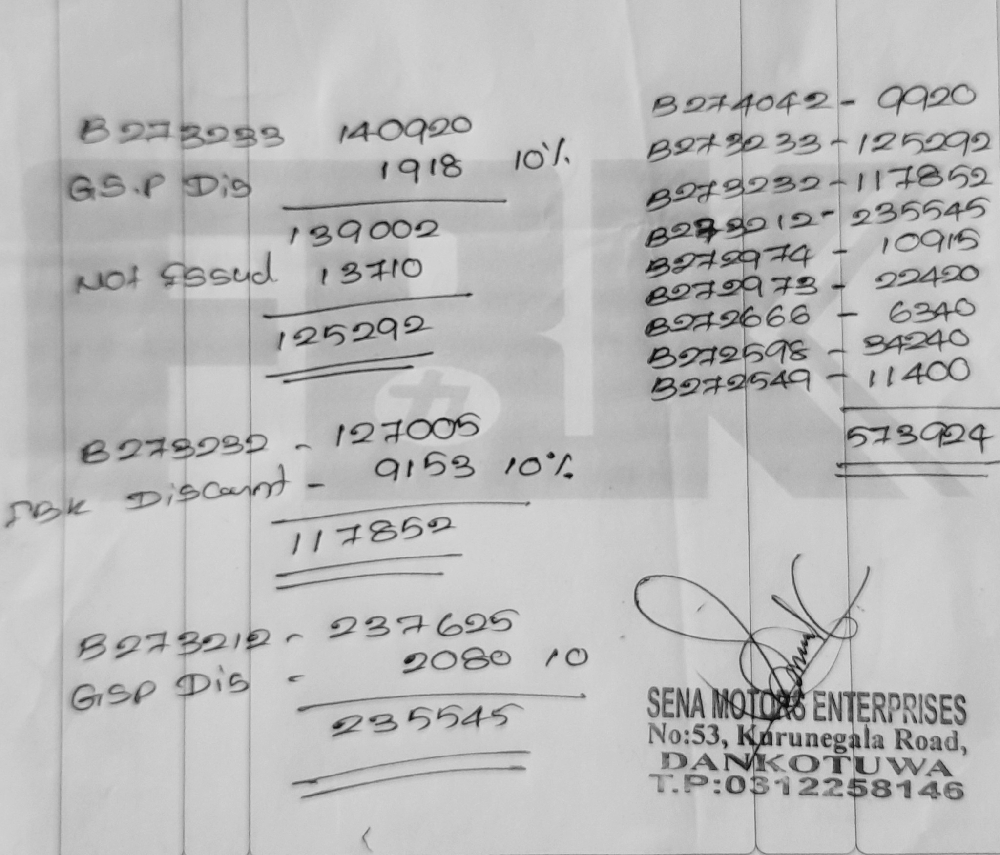 B273233 140920
GS.P Dis 1918 10%
139002
Not Essud 13710
125292
B273232 - 127005
FBK Discount - 9153 10%
117852
B273212 - 237625
GSP Dis - 2080 10
235545
B274042 - 9920
B273233 - 125292
B273232 - 117852
B273212 - 235545
B272974 - 10915
B272973 - 22420
B272666 - 6340
B272598 - 34240
B272549 - 11400
573924
SENA MOTORS ENTERPRISES
No:53, Kurunegala Road,
DANKOTUWA
T.P:0312258146
FBK
力